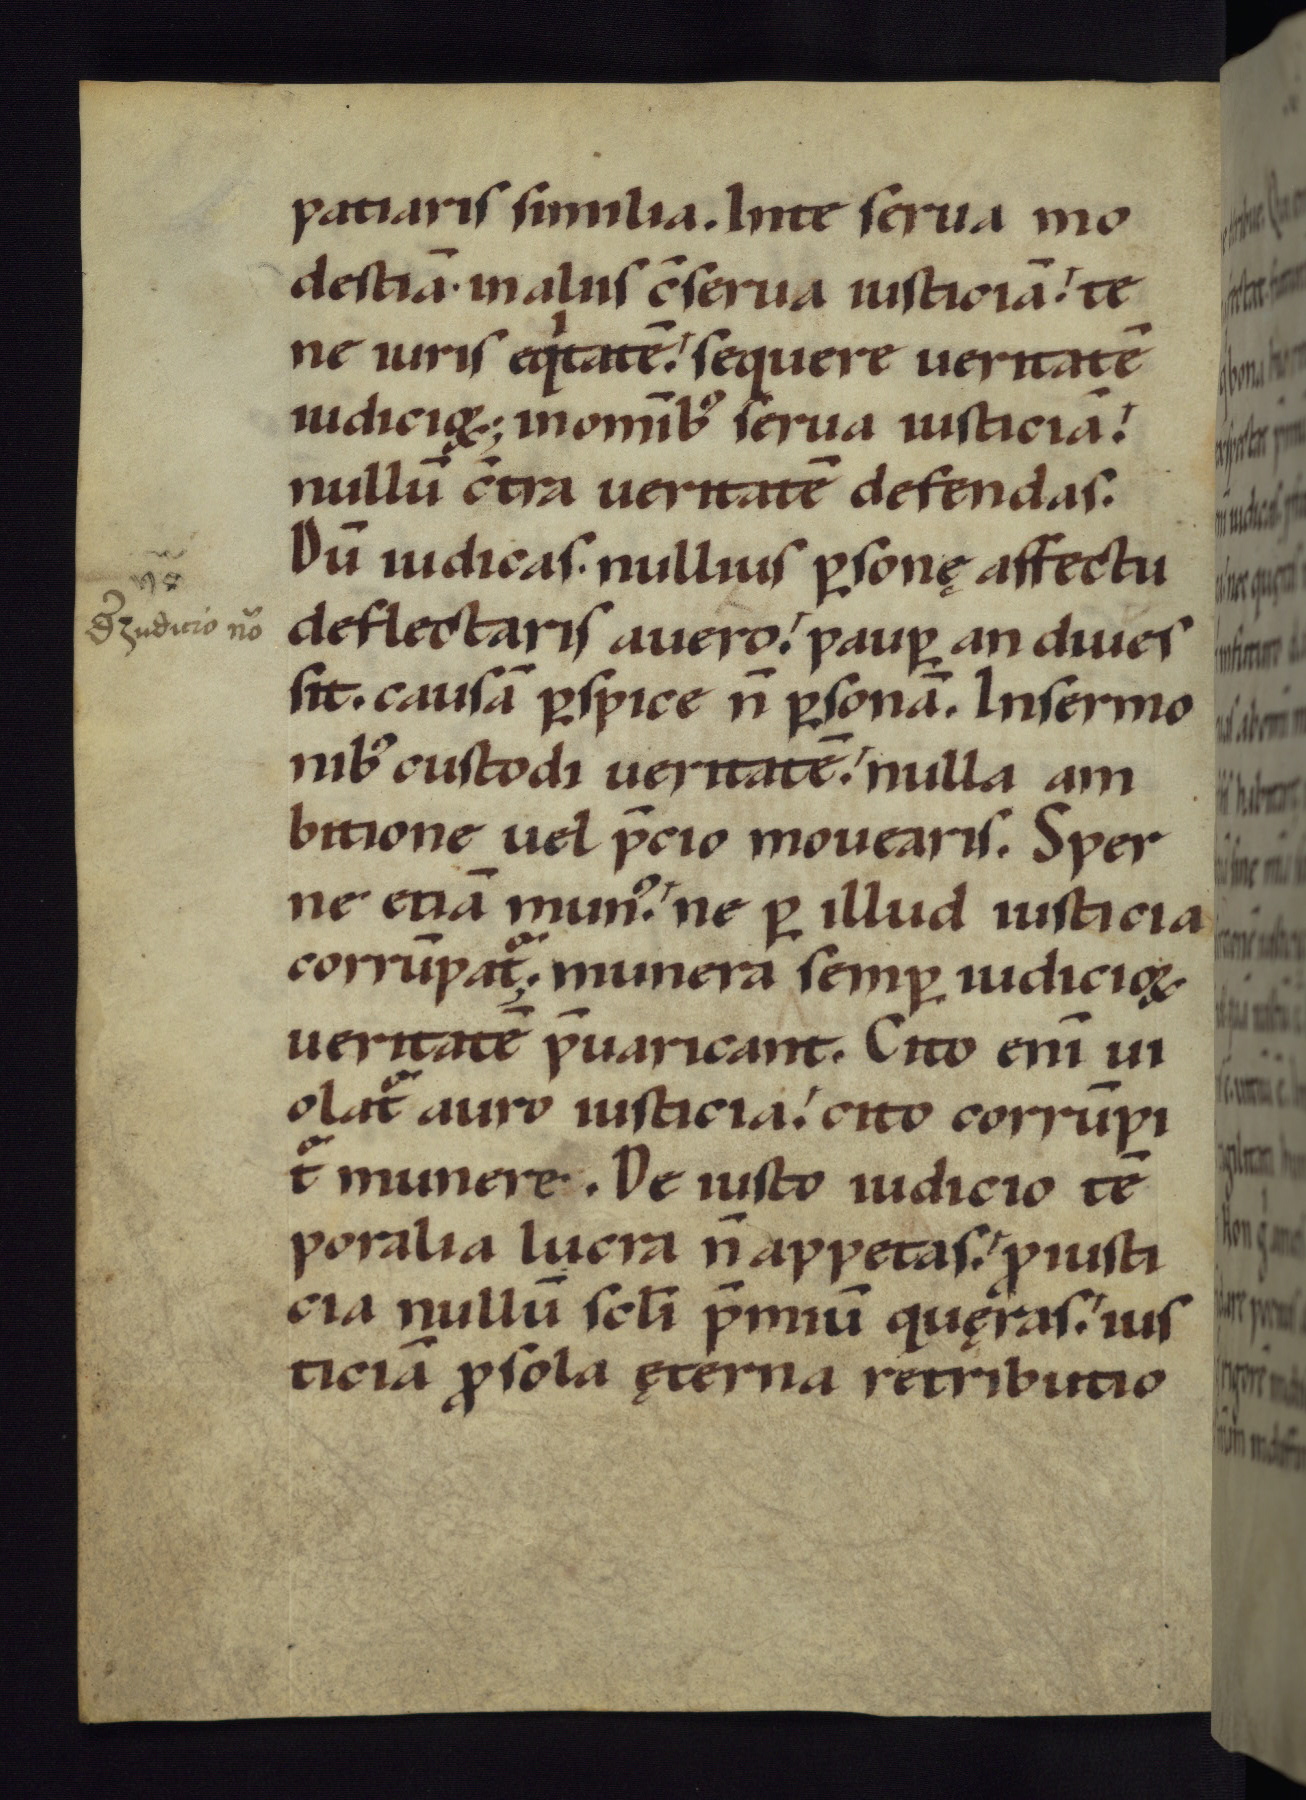 patiaris similia. Inte serua mo
destiā· in aliis c̄serua iusticiā! te
ne iuris eqͥtatē! sequere ueritatē
iudicioꝝ; in om̄ibꝰ serua iusticiā!
nullū c̄tra ueritatē defendas.
Dū iudicas· nullius ꝑsonę affectu
deflectaris auero! pauꝑ an diues
sit. causā ꝑspice n̄ ꝑsonā. Insermo
nibꝰ custodi ueritatē! nulla am
bitione uel p̄cio mouearis. Sper
ne etiā munꝰ! ne ꝑ illud iusticia
corrūpat᷑; munera semꝑ iudicioꝝ
ueritatē p̄uaricant. Cito eni̅ ui
olat᷑ auro iusticia! cito corrūpi
t᷑ munere. De iusto iudicio tē
poralia lucra n̄ appetas! ꝓiusti
cia nullū scl̄i p̄miū quęras! ius
ticiā ꝓsola ęterna retributio